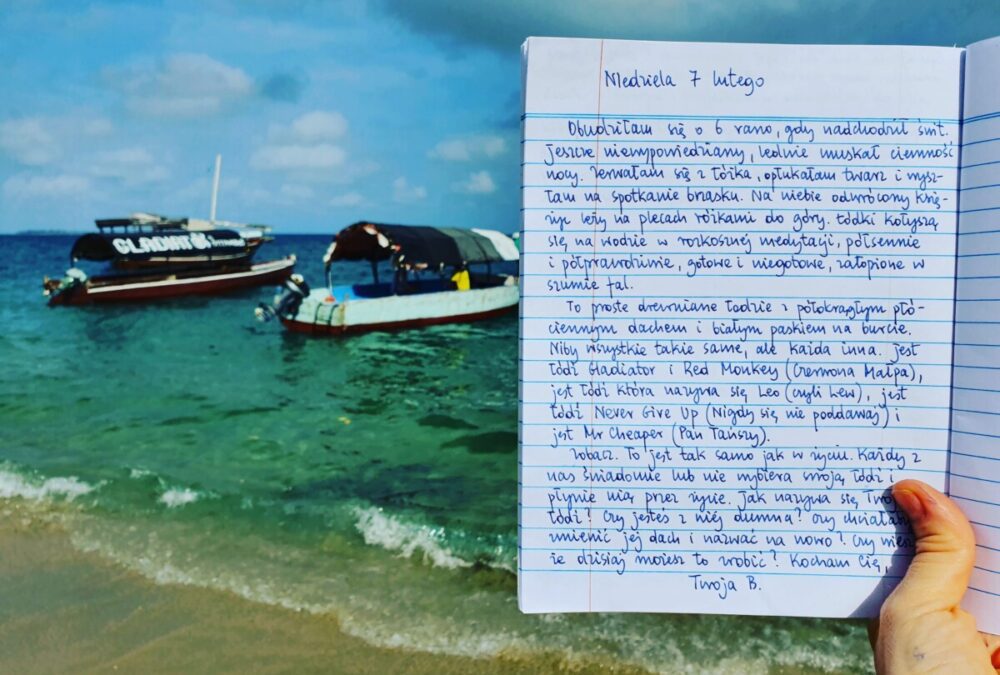 GLADIAT
Niedziela 7 lutego
Obudziłam się o 6 rano, gdy nadchodził świt.
Jeszcze niewypowiedziany, ledwie muskał ciemność
nocy. Zerwałam się z łóżka, opłukałam twarz i wysz-
łam na spotkanie brzasku. Na niebie odwrócony księ-
życ leży na plecach różkami do góry. Łódki kołyszą
się na wodzie w rozkosznej medytacji, półsennie
i półprawdziwie, gotowe i niegotowe, zatopione w
szumie fal.
To proste drewniane łodzie z półokrągłym płó-
ciennym dachem i białym paskiem na burcie.
Niby wszystkie takie same, ale każda inna. Jest
łódź Gladiator i Red Monkey (Czerwona Małpa),
jest łódź która nazywa się Leo (czyli Lew), jest
łódź Never Give Up (Nigdy się nie poddawaj) i
jest Mr Cheaper (Pan Tańszy).
Zobacz. To jest tak samo jak w życiu. Każdy z
nas świadomie lub nie wybiera swoją łódź i
płynie nią przez życie. Jak nazywa się Two
łódź? Czy jesteś z niej dumna? Czy chciałab
zmienić jej dach i nazwać na nowo? Czy wiesz
że dzisiaj możesz to zrobić? Kocham Cię,
Twoja B.